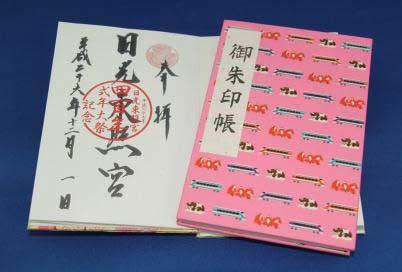 奉拝
日光東照宮
日光東照宮
式年大祭
記念
平成二十六年十二月一日
御朱印帳